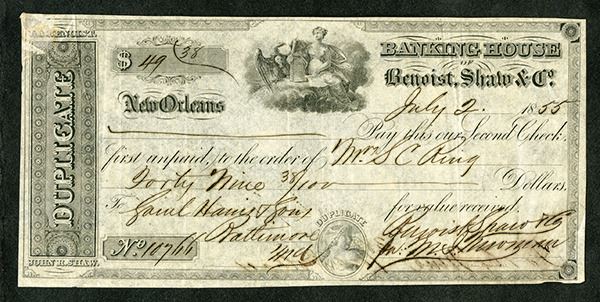 L.A. BENOIST.
DUPLICATE
JOHN R. SHAW.
$ 49 38
BANKING HOUSE
OF
Benoist, Shaw & Co.
New Orleans
July 2. 1855
Pay this our Second Check,
first unpaid, to the order of Mrs S C King
Forty Nine 38/100 Dollars.
To Saml Harris & Sons for value received,
Baltimore
Md
DUPLICATE
No 10766
Benoist Shaw & Co